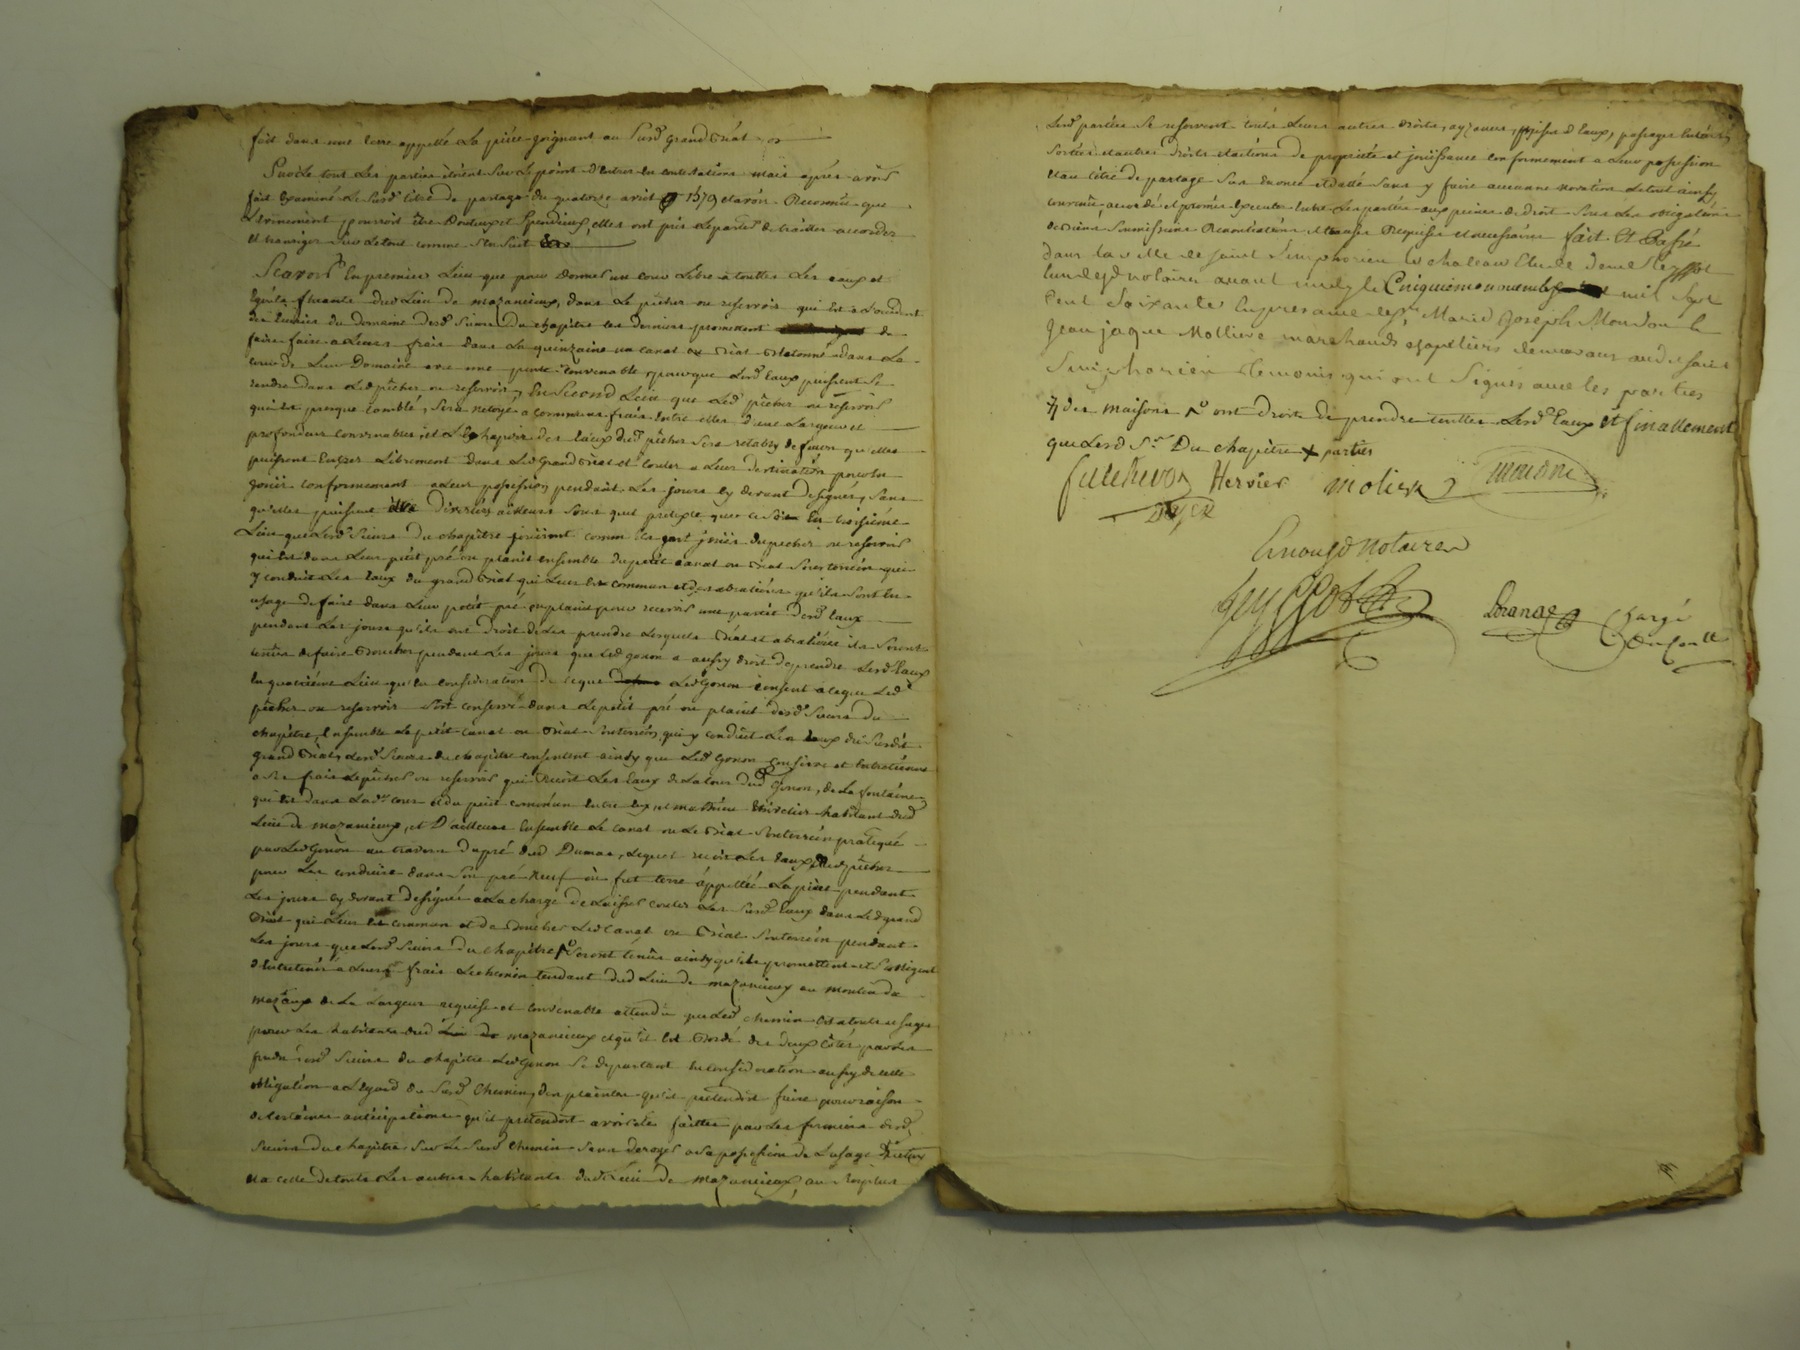 fait dans une terre appellé La piéce joignant au Susd. grand Béat
Sur le tout Les parties étoient Sur Le point d'entrer en contestations mais aprés avoir
fait Examiné Le Susd. titre de partage du quatorze avril 1579 et avoir Reconnu que
L'evénement pourroit être douteux et Spendieux, elles ont pris Le parti de traitter accorder
et transiger Sur Le tout comme S'en Suit
Scavoir En premier Lieu que pour donner un cours Libre a touttes Les eaux et
égouts fluants du Lieu de mazancieux, dans Le pêcher ou reservoir qui est a L'occident
des Ecuries du domaine desd. Sieurs du chapitre ces derniers promettent de
faire faire a Leurs frais dans La quinzaine un canal ou Béat dans La
cour de Leur Domaine avec une pente convenable pour que Lesd. Eaux puissent Se
rendre dans Led. pêcher ou reservoir, En Second Lieu que Led. pêcher ou reservoir
qui est presque comblé, Sera netoyé a communs frais entre elles d'une Largeur et
profondeur convenables et L'échapoir des Eaux dud. pêcher Sera retably de façon qu'elles
puissent Entrer Librement dans Led. grand Béat et couler a Leur destination pour en
jouir conformement a Leur possession pendant Les jours cy devant designés, Sans
qu'elles puissent être diverties ailleurs Sous quel pretexte que ce Soit En troisiéme
Lieu que Lesd. Sieurs du chapitre jouiront comme ils ont jouis du pecher ou reservoir
qui est dans Leur petit pré ou plané ensemble du petit canal ou Béat Souterrein qui
y conduit Les Eaux du grand Béat qui Leur est commun et des abatières qu'ils Sont en
usage de faire dans Leur petit pré ou plané pour recevoir une partie desd. Eaux
pendant Les jours qu'ils ont Droit de Les prendre Lesquels Béat et abatières ils Seront
tenus de faire Boucher pendant Les jours que Led. gonon a aussy droit de prendre Lesd. Eaux
En quatriéme Lieu qu'en consideration de ce que Led. Gonon consent a ce que Led.
pêcher ou reservoir Soit conservé dans Le petit pré ou plané desd. Sieurs du
chapitre, Ensemble Le petit canal ou Béat Souterrein, qui y conduit Les Eaux du Susdit
grand Béat, Lesd. Sieurs du chapitre consentent aussy que Led. Gonon conserve et Entretienne
a Ses frais Le pêcher ou reservoir qui reçoit Les Eaux de La cour dud. Gonon, de La fontaine
qui est dans Lad. cour et du puit commun entre Luy et mathieu habitant dud.
Lieu de mazancieux, et D'ailleurs Ensemble Le canal ou Le Béat Souterrein pratiqué
par Led. Gonon au travers du pré dud. Dumas, Lequel reçoit Les Eaux dud. pêcher
pour Les conduire dans Son pré Neuf ou fut terre appellée La piéce pendant
Les jours cy devant designés a La charge de Laisser couler Les Susd. Eaux dans Led. grand
Béat qui Leur est commun et de Boucher Led. canal ou Béat Souterrein pendant
Les jours que Lesd. Sieurs du chapitre Seront tenus ainsy qu'ils promettent et S'obligent
d'Entretenir a Leurs frais Le chemin tendant dud. Lieu de mazancieux au moulin de
mazaux de La Largeur requise et convenable attendu que Led. chemin est a touts usages
pour Les habitants dud. mazancieux et qu'il est Bordé des deux côtés par Les
fonds desd. Sieurs du chapitre Led. Gonon Se departant en consideration aussy de cette
obligation a L'Egard du Susd. Chemin, des plaintes qu'il pretendoit faire pour raison
de certaines anticipations qu'il pretendoit avoir été faittes par Les fermiers desd.
Sieurs du chapitre Sur Le Susd. Chemin Sans deroger a Sa possession de L'usage
et a celle de touts Les autres habitants dud. Lieu de mazancieux, au Surplus
Lesd. parties Se reservent touts Leurs autres droits, ayzances, prises d'Eaux, passages Entrées,
Sorties et autres droits et actions de proprieté et jouissance conformement a Leur possession
et au titre de partage Sus Enoncé et datté Sans y faire aucune novation Le tout ainsy
convenu, accordé et promis Executer Entre Les parties aux peines de droit Sous Les obligations
de biens Soumissions Renonciations et clauses Requises et necessaires fait et Passé
dans la ville de Saint Simphorien le chateau Etude de me Peyssot
lun desd. notaires avant midy le Cinquieme novembre mil Sept
Cent Soixante En presence de Srs Marie Joseph Mondon &
Jean jaque Molliere marchands chapelliers demeurans aud. Saint
Simphorien temoins qui ont Signés avec les parties
des maisons ont droit de prendre touttes Lesd. Eaux et finallement
que Lesd. Srs Du chapitre x parties
Hervier moliere mondon
Doyen
Arnaud Notaire
Peyssot